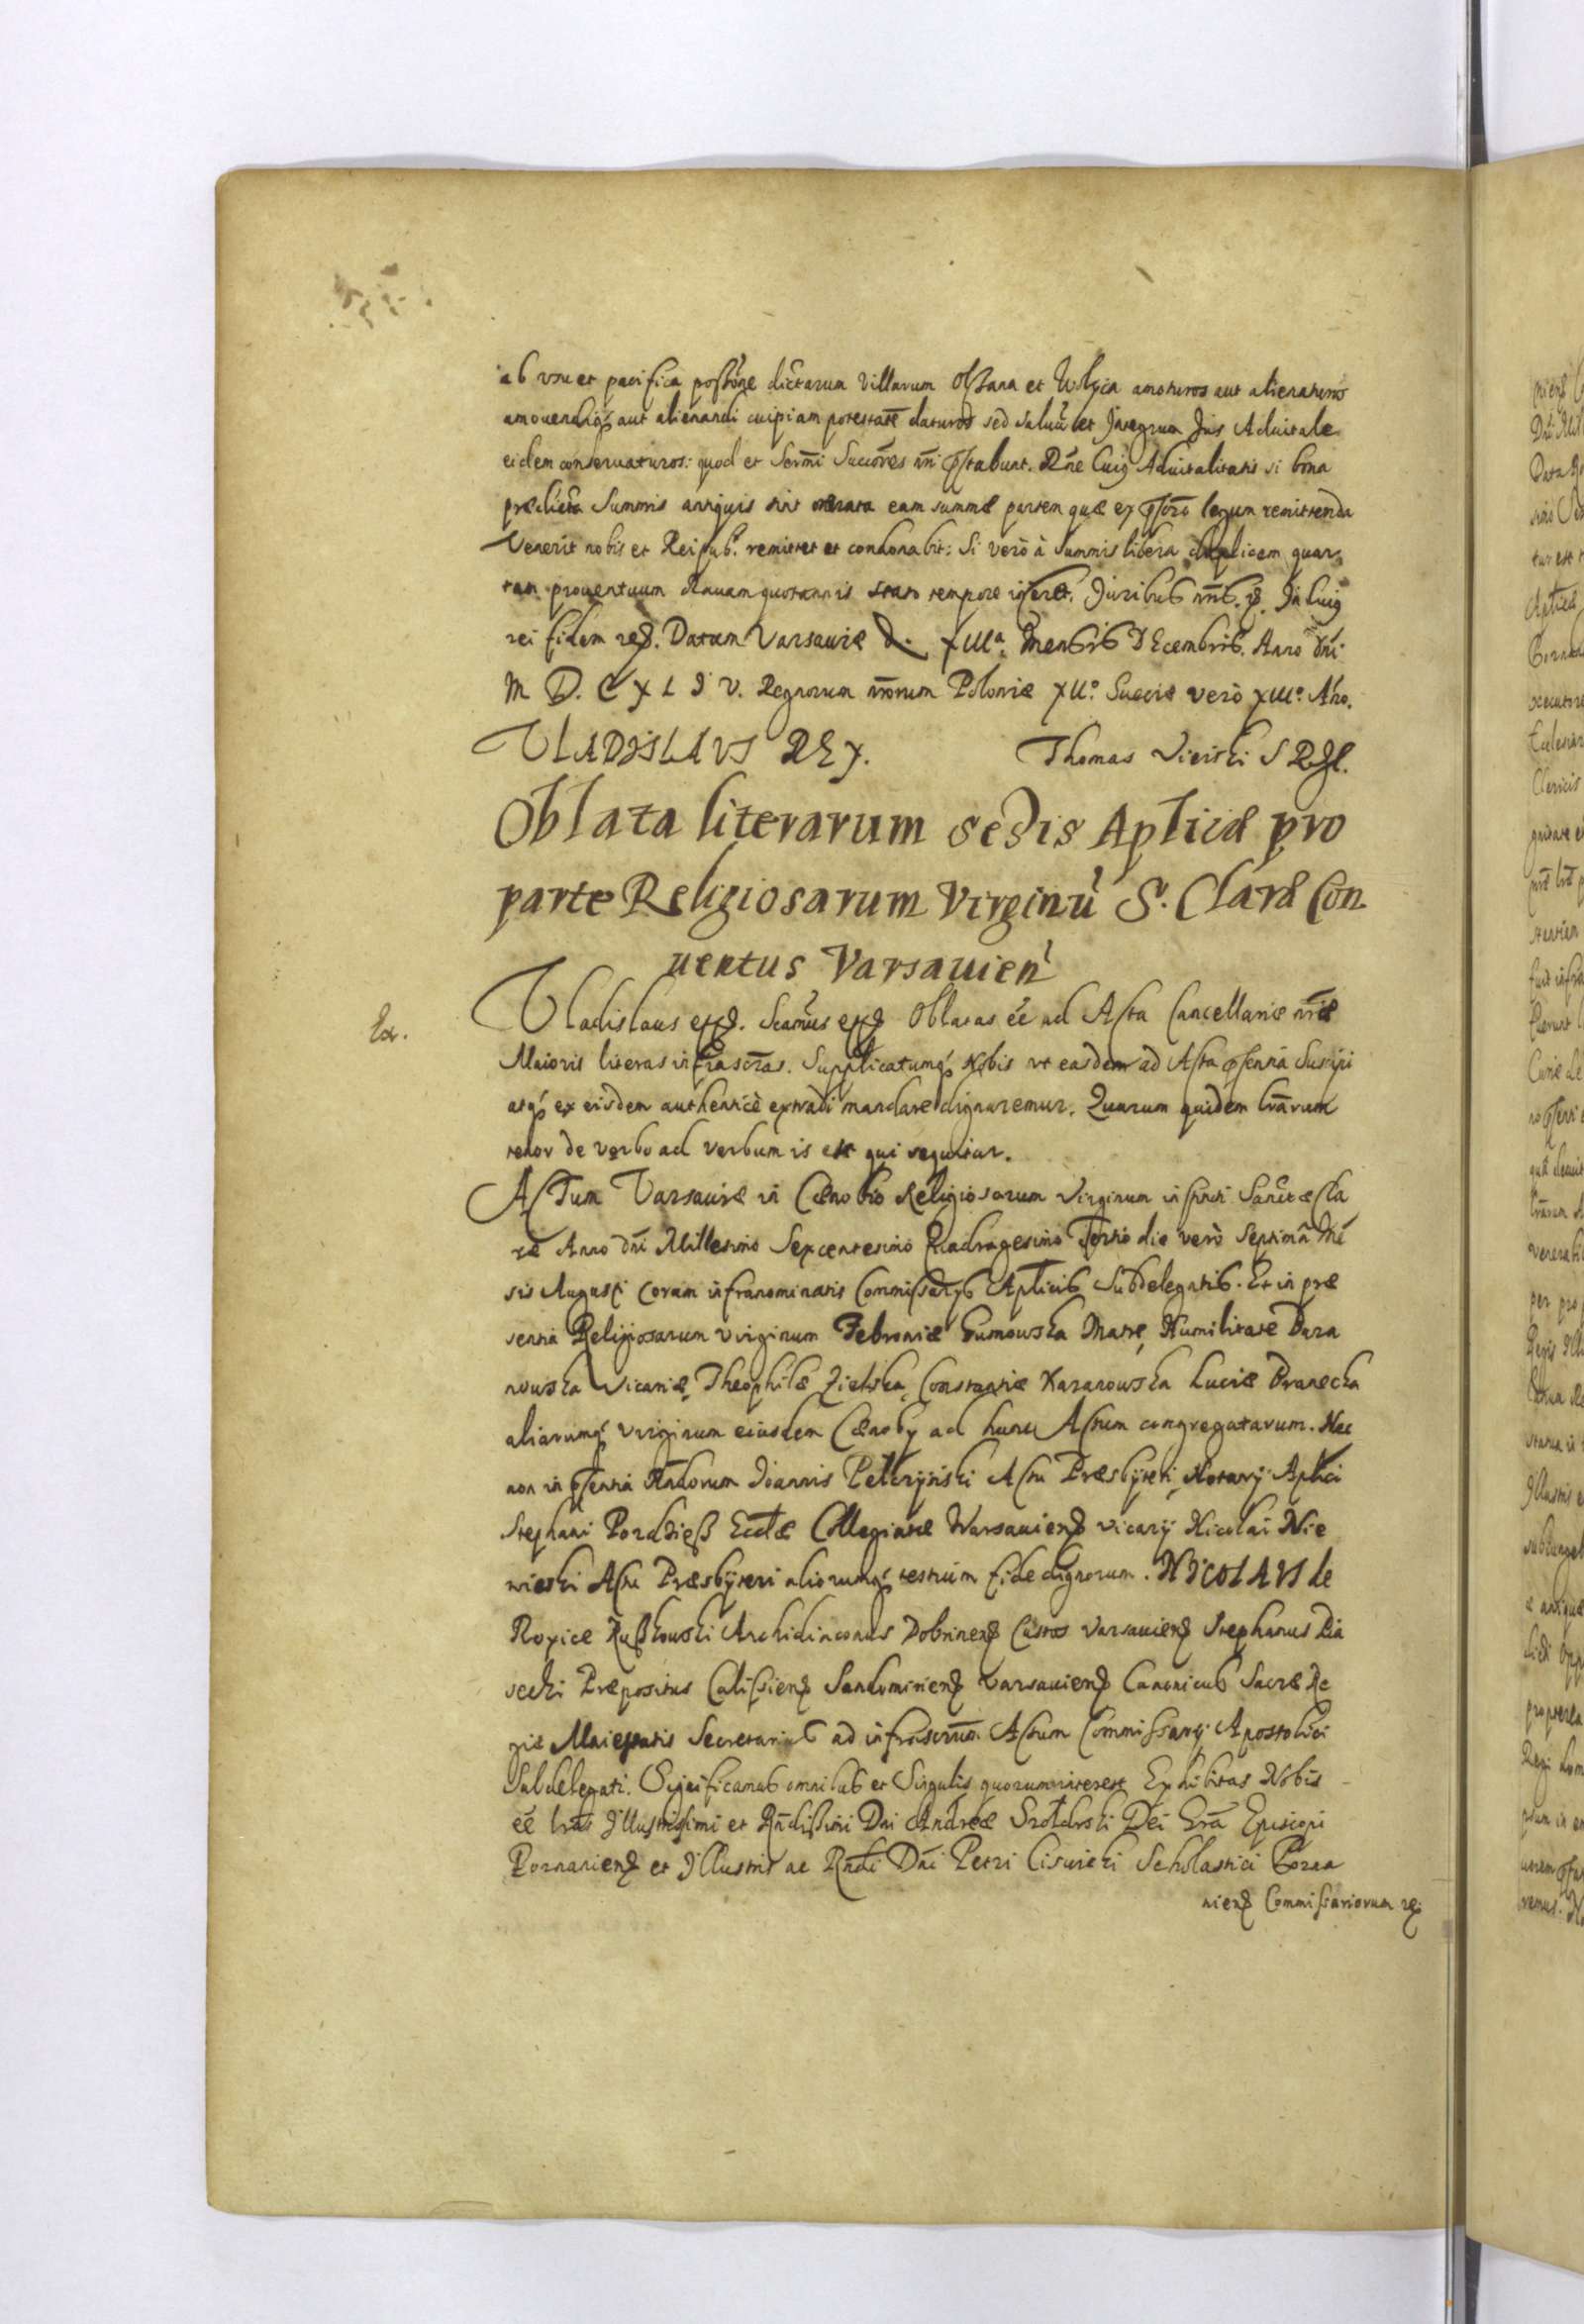 ab usu et pacifica possōne dictarum Villarum Olszana et Wolycia amoturos aut alienaturos
amouendiq́ aut alienandi cuipiam potestatē daturos sed saluū et Integrum Jus Aduitale
eidem conseruaturos: quod et Sermī Succōres nrī pstabunt. Rne Cuiq Aduitalitatis si bona
prædicta Summis antiquis sint onerata eam summæ partem quæ ex pscrō legum remittenda
Venerit nobis et Reipub. remittet et condonabit: Si verò à summis libera duplicem quar
tam prouentuum Rauam quotannis stato tempore inferet. Juribus nrīs. In Cuiq
rei fidem. Datum Varsauiæ d. XIIIa. Mensis DEcembris. Anno Dnī
M D. C X L I V. Regnorum nrorum Poloniæ XIIo. Sueciæ verò XIIIo. Año.
VLADISLAVS REX. Thomas Vieiski S R Ml.
Oblata literarum sedis Aplicæ pro
parte Religiosarum Virginū S. Claræ Con
uentus Varsauien
Ex.
Vladislaus etc. Scamus etc Oblatas eē ad Acta Cancellariæ nrīæ
Maioris literas infrascrās. Supplicatumq́ Nobis vt easdem ad Acta psentia Suscipi
atq́ ex eisdem authenticè extradi mandare dignaremur. Quarum quidem lrārum
tenor de verbo ad verbum is est qui sequitur.
ACtum Varsauiæ in Cænobio Religiosarum Virginum instituti Sanctæ Cla
ræ Anno dnī Millesimo Sexcentesimo Quadragesimo Tertio die verò Septimā Mē
sis Augusti Coram infranominatis Commissarijs Aplicis Subdelegatis. Et in præ
sentia Religiosarum Virginum Febroniæ Gumowska Matre, Humilitate Bara
nowska Vicariæ, Theophilæ Zielska, Constantiæ Kazanowska Luciæ Branecka
aliarumq́ virginum eiusdem Cænobij ad hunc Actum congregatarum. Nec
non in psentia Rndorum Joannis Pelczynski Actu Præsbyteri, Notarij Aplici
Stephani Poradiess Ecclæ Collegiatæ Warsauien Vicarij Nicolai Nie
wieski Actu Præsbyteri aliorumq́ testium fide dignorum. NICOLAVS de
Roxice Russkowski Archidiaconus Dobrinen Custos Varsauien Stephanus Pia
secki Præpositus Calissien Sandomirien Varsauien Canonicus Sacræ Re
giæ Maiestatis Secretarius ad infrascrum Actum Commissarij Apostolici
Subdelegati. Significamus omnibus et Singulis quorum interest Exhibitas Nobis
eē lras Illustrissimi et Rndissimi Dni Andreæ Szoldrski Dei Grā Episcopi
Poznanien et Illustris ac Rndi Dni Petri Lisiecki Scholastici Pozna
nien Commissariorum